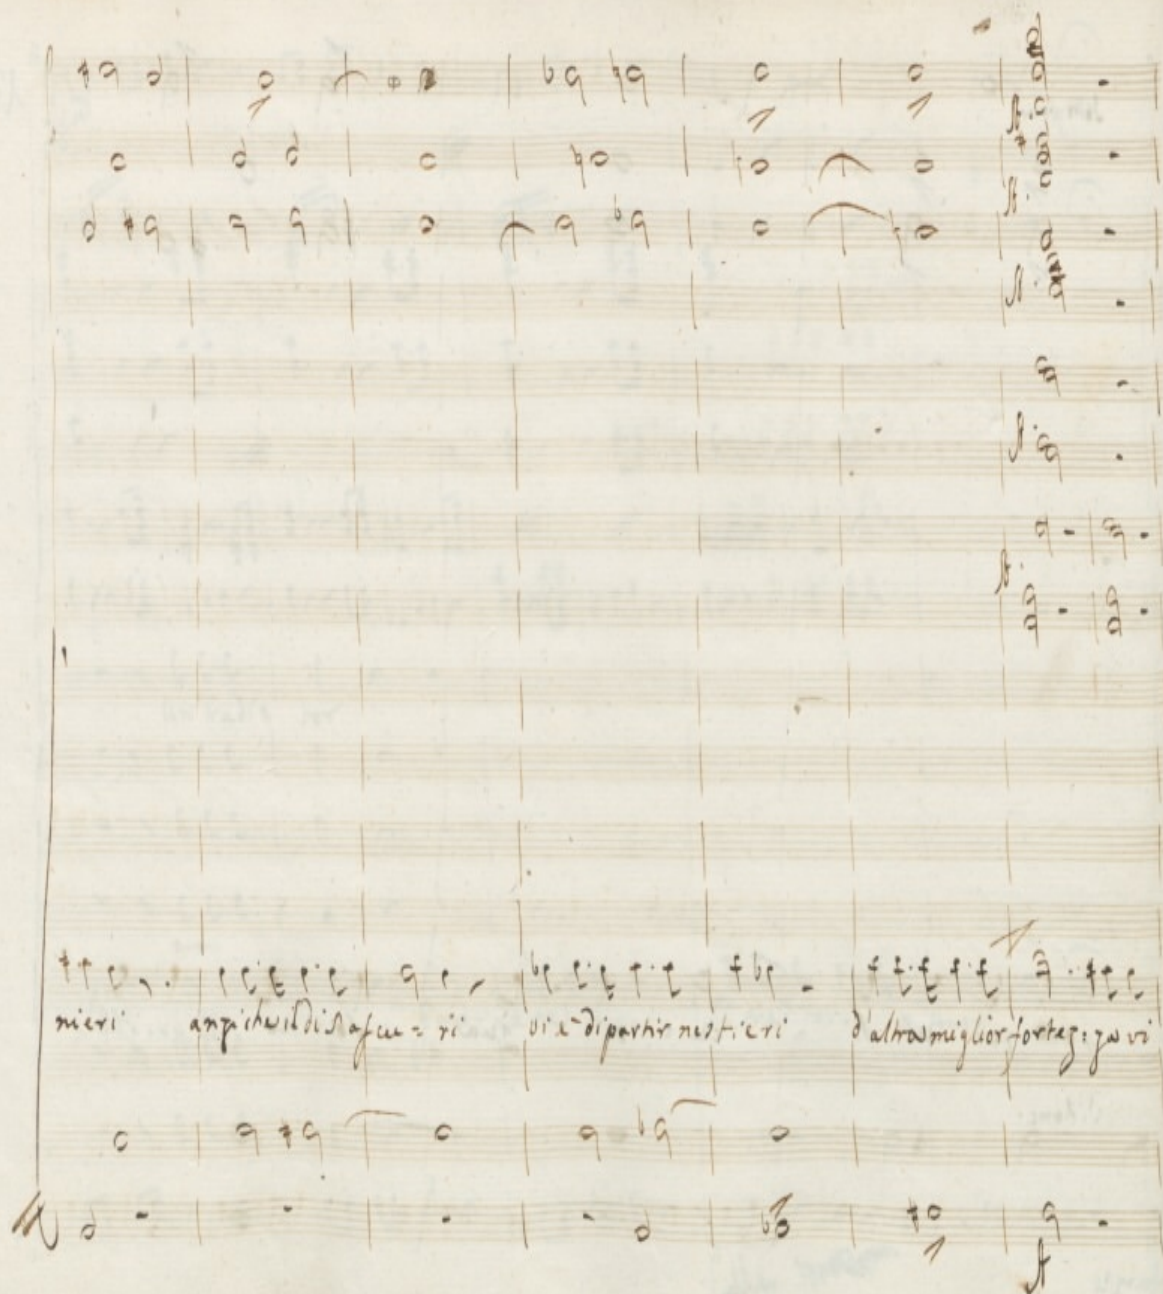 nieri anzi che il dì s'afcu=ri vi è di partir mestieri d'altra miglior fortez:za vi